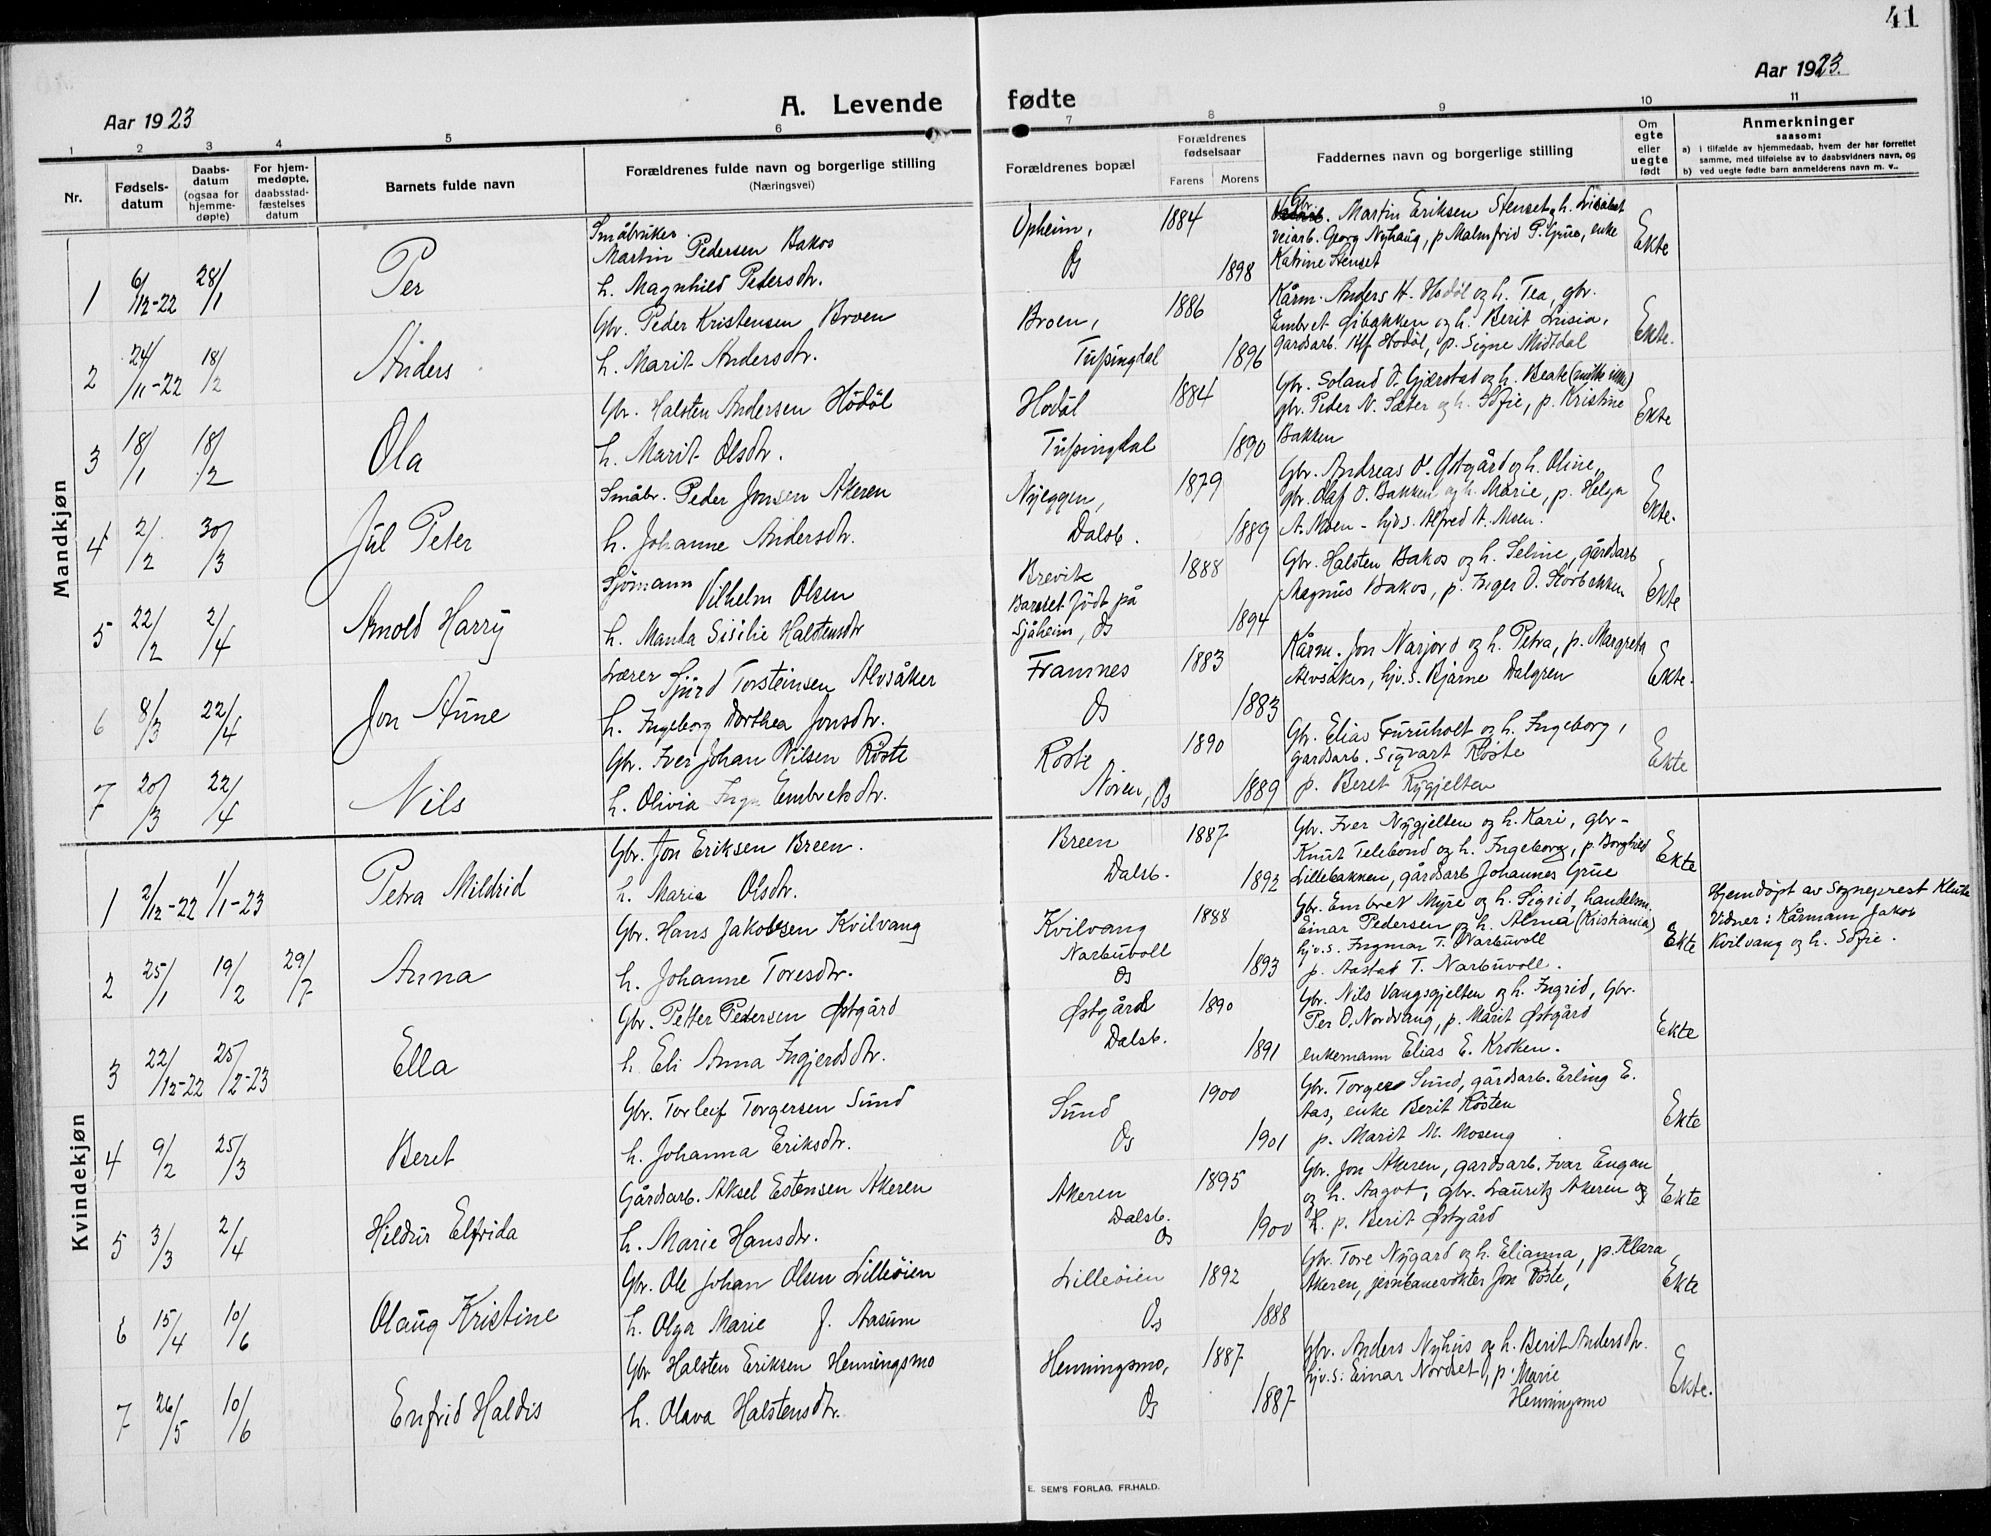 41
Aar 1923
A. Levende fødte
Aar 1923.
1 2 3 4 5 6 7 8 9 10 11
Nr.
Fødsels-
datum
Daabs-
datum
(ogsaa for
hjemme-
døpte)
For hjem-
medøpte,
daabsstad-
fæstelses
datum
Barnets fulde navn
Forældrenes fulde navn og borgerlige stilling
(Næringsvei)
Forældrenes bopæl
Forældrenes
fødselsaar
Farens Morens
Faddernes navn og borgerlige stilling
Om
egte
eller
uegte
født
Anmerkninger
saasom:
a) i tilfælde av hjemmedaab, hvem der har forrettet
samme, med tilføielse av to daabsvidners navn, og
b) ved uegte fødte barn anmelderens navn m. v..
Mandkjøn
1 6/12-22 28/1 Per
Småbruker
Martin Pedersen Bakos
h. Magnhild Pedersdtr.
Opheim,
Os
1884
1898
Gbr. Martin Eriksen Stenset, h. Lisabet
veiarb. Georg Nyhaug, p. Malmfrid P. Grue, enke
Katrine Stenset
Ekte
2 24/11-22 18/2 Anders
Gbr. Peder Kristensen Broen
h. Marit Andersdtr.
Broen,
Tufsingdal
1886
1896
Kårm. Anders H. Hodøl og h. Tea, gbr.
Embret Øibakken og h. Berit Lusia,
gardsarb. Alf Hodøl, p. Signe Midtdal
Ekte.
3 18/1 18/2 Ola
Gbr. Halsten Andersen Hodøl
h. Marit Olsdtr.
Hodøl
Tufsingdal
1884
1890
Gbr. Soland O. Gjærstad og h. Beate
gbr. Peder N. Sæter og h. Sofie, p. Kristine
Bakken
Ekte
4 2/2 30/3 Jul Peter
Småbr. Peder Jonsen Akeren
h. Johanne Andersdtr.
Nyeggen,
Dalsb.
1879
1889
Gbr. Andreas O. Østgård og h. Oline,
gbr. Olaf O. Bakken og h. Marie, p. Helga
A. Moen - hjv.s. Alfred A. Moen.
Ekte.
5 22/2 2/4 Arnold Harry
Sjömann
Vilhelm Olsen
h. Manda Sisilie Halstensdtr
Brevik
Barnet født på
Sjåheim, Os
1888
1894
Gbr. Halsten Bakos og h. Seline, gårdsarb
Magnus Bakos, p. Inger O. Storbekken
Ekte
6 8/3 22/4 Jon Aune
Lærer
Sjurd Torsteinsen Alvsåker
h. Ingeborg Dorthea Jonsdtr.
Framnes
Os
1883
1883
Kårm. Jon Narjord og h. Petra, p. Margreta
Alvsåker, hjv.s. Bjarne Dalgren
Ekte.
7 20/3 22/4 Nils
Gbr. Iver Johan Nilsen Röste
h. Olivia Inga Embretsdtr.
Röste
Noren, Os
1890
1889
Gbr. Elias Furuholt og h. Ingeborg,
gardsarb. Sigvart Röste
p. Beret Rygjelten
Ekte
Kvindekjøn
1 2/12-22 1/1-23 Petra Mildrid
Gbr. Jon Eriksen Breen.
h. Maria Olsdtr.
Breen
Dalsb.
1887
1892
Gbr. Iver Nygjelten og h. Kari, gbr-
Knut Telebond og h. Ingeborg, p. Borghild
Lillebakken, gårdsarb Johannes Grue
Ekte
2 25/1 19/2 29/7 Anna
Gbr. Hans Jakobsen Kvilvang
h. Johanne Toresdtr.
Kvilvang
Narbuvoll
Os
1888
1893
Gbr. Embret Myre og h. Sigrid, handelsm.
Einar Pedersen og h. Alma (Kristiania)
hjv.s. Ingmar T. Narbuvoll
p. Aastad T. Narbuvoll.
Ekte
Hjemdøpt av Sogneprest
Vidner: Kårmann Jakob
Kvilvang og h. Sofie.
3 22/12-22 25/2-23 Ella
Gbr. Petter Pedersen Østgård
h. Eli Anna Ingjerdsdtr.
Østgård
Dalsb.
1890
1891
Gbr. Nils Vangsgjelten og h. Ingrid, Gbr.
Per O. Nordvang, p. Marit Østgård
enkemann Elias E. Kroken.
Ekte
4 9/2 25/3 Beret
Gbr. Torleif Torgersen Sund
h. Johanna Eriksdtr.
Sund
Os
1900
1901
Gbr. Torger Sund, gårdsarb. Erling E.
Aas, enke Berit Rösten
p. Marit M. Moseng
Ekte
5 3/3 2/4 Hildur Elfrida
Gårdsarb. Aksel Estensen Akeren
h. Marie Hansdtr.
Akeren
Dalsb.
Os
1895
1900
Gbr. Jon Akeren, gardsarb. Ivar Engan
og h. Aagot, gbr. Lauritz Akeren og
h. p. Berit Østgård
Ekte
6 15/4 10/6 Olaug Kristine
Gbr. Ole Johan Olsen Lilleöien
h. Olga Marie J. Aasum
Lilleöien
Os
1892
1888
Gbr. Tore Nygard og h. Elianna, p. Klara
Akeren, jernbanevokter Jon Röste,
Ekte
7 26/5 10/6 Enfrid Haldis
Gbr Halsten Eriksen Henningsmo
h. Olava Halstensdtr.
Henningsmo,
Os
1887
1887
Gbr. Anders Nyhus og h. Berit Andersdtr.
hjv.s: Einar Nordset, p. Marie
Henningsmo
Ekte.
E. SEM'S FORLAG. FR.HALD.